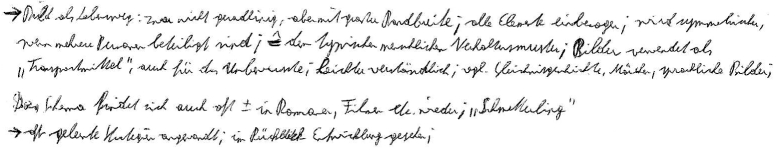 → Nicht als Lebensweg: zwar nicht geradlinig, aber mit großer Bandbreite; alle Elemente einbezogen; wird symmetrischer,
wenn mehrere Personen beteiligt sind; ≙ dem typischen menschlichen Verhaltensmuster; Bilder verwendet als
„Transportmittel", auch für das Unbewusste; Leichter verständlich; vgl. Gleichnisgeschichte, Märchen, sprachliche Bilder;
Dieses Schema findet sich auch oft ± in Romanen, Filmen etc. wieder; „Schmetterling"
→ oft gelernte Strategien angewandt; im Rückblick Entwicklung gesehen;